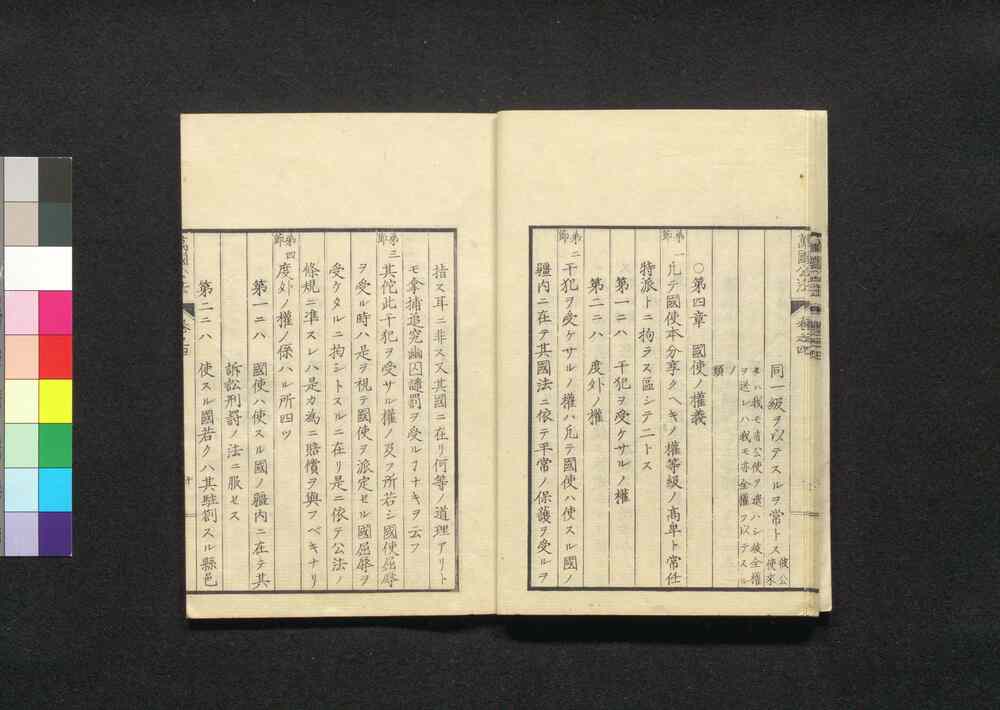 萬國公法
同一級ヲ以テスルヲ常トス
彼公使來
キハ我モ首公使ヲ遣ハシ彼全權
ヲ送レハ我モ亦全權ヲ以テスル
ノ
類
○第四章 國使ノ權義
第一節
凡テ國使本分享クヘキノ權等級ノ高卑ト常任
特派トニ拘ラス區シテ二トス
第一ニハ 干犯ヲ受ケサルノ權
第二ニハ 度外ノ權
第二節
干犯ヲ受ケサルノ權ハ凡テ國使ハ使スル國ノ
疆内ニ在テ其國法ニ依テ平常ノ保護ヲ受ルヲ
指ス耳ニ非ス又其國ニ在リ何等ノ道理アリト
モ拿捕追究幽囚譴罰ヲ受ルヿナキヲ云フ
第三節
其佗此干犯ヲ受サル權ノ及フ所若シ國使屈辱
ヲ受ル時ハ是ヲ視テ國使ヲ派定セル國屈辱ヲ
受ケタルニ拘シトスルニ在リ是ニ依テ公法ノ
條規ニ準スレハ是カ為ニ賠償ヲ與フベキナリ
第四節
度外ノ權ノ係ハル所四ツ
第一ニハ 國使ハ使スル國ノ疆内ニ在テ其
訴訟刑罰ノ法ニ服セス
第二ニハ 使スル國若クハ其駐劄スル縣邑
萬國公法
卷之四
十